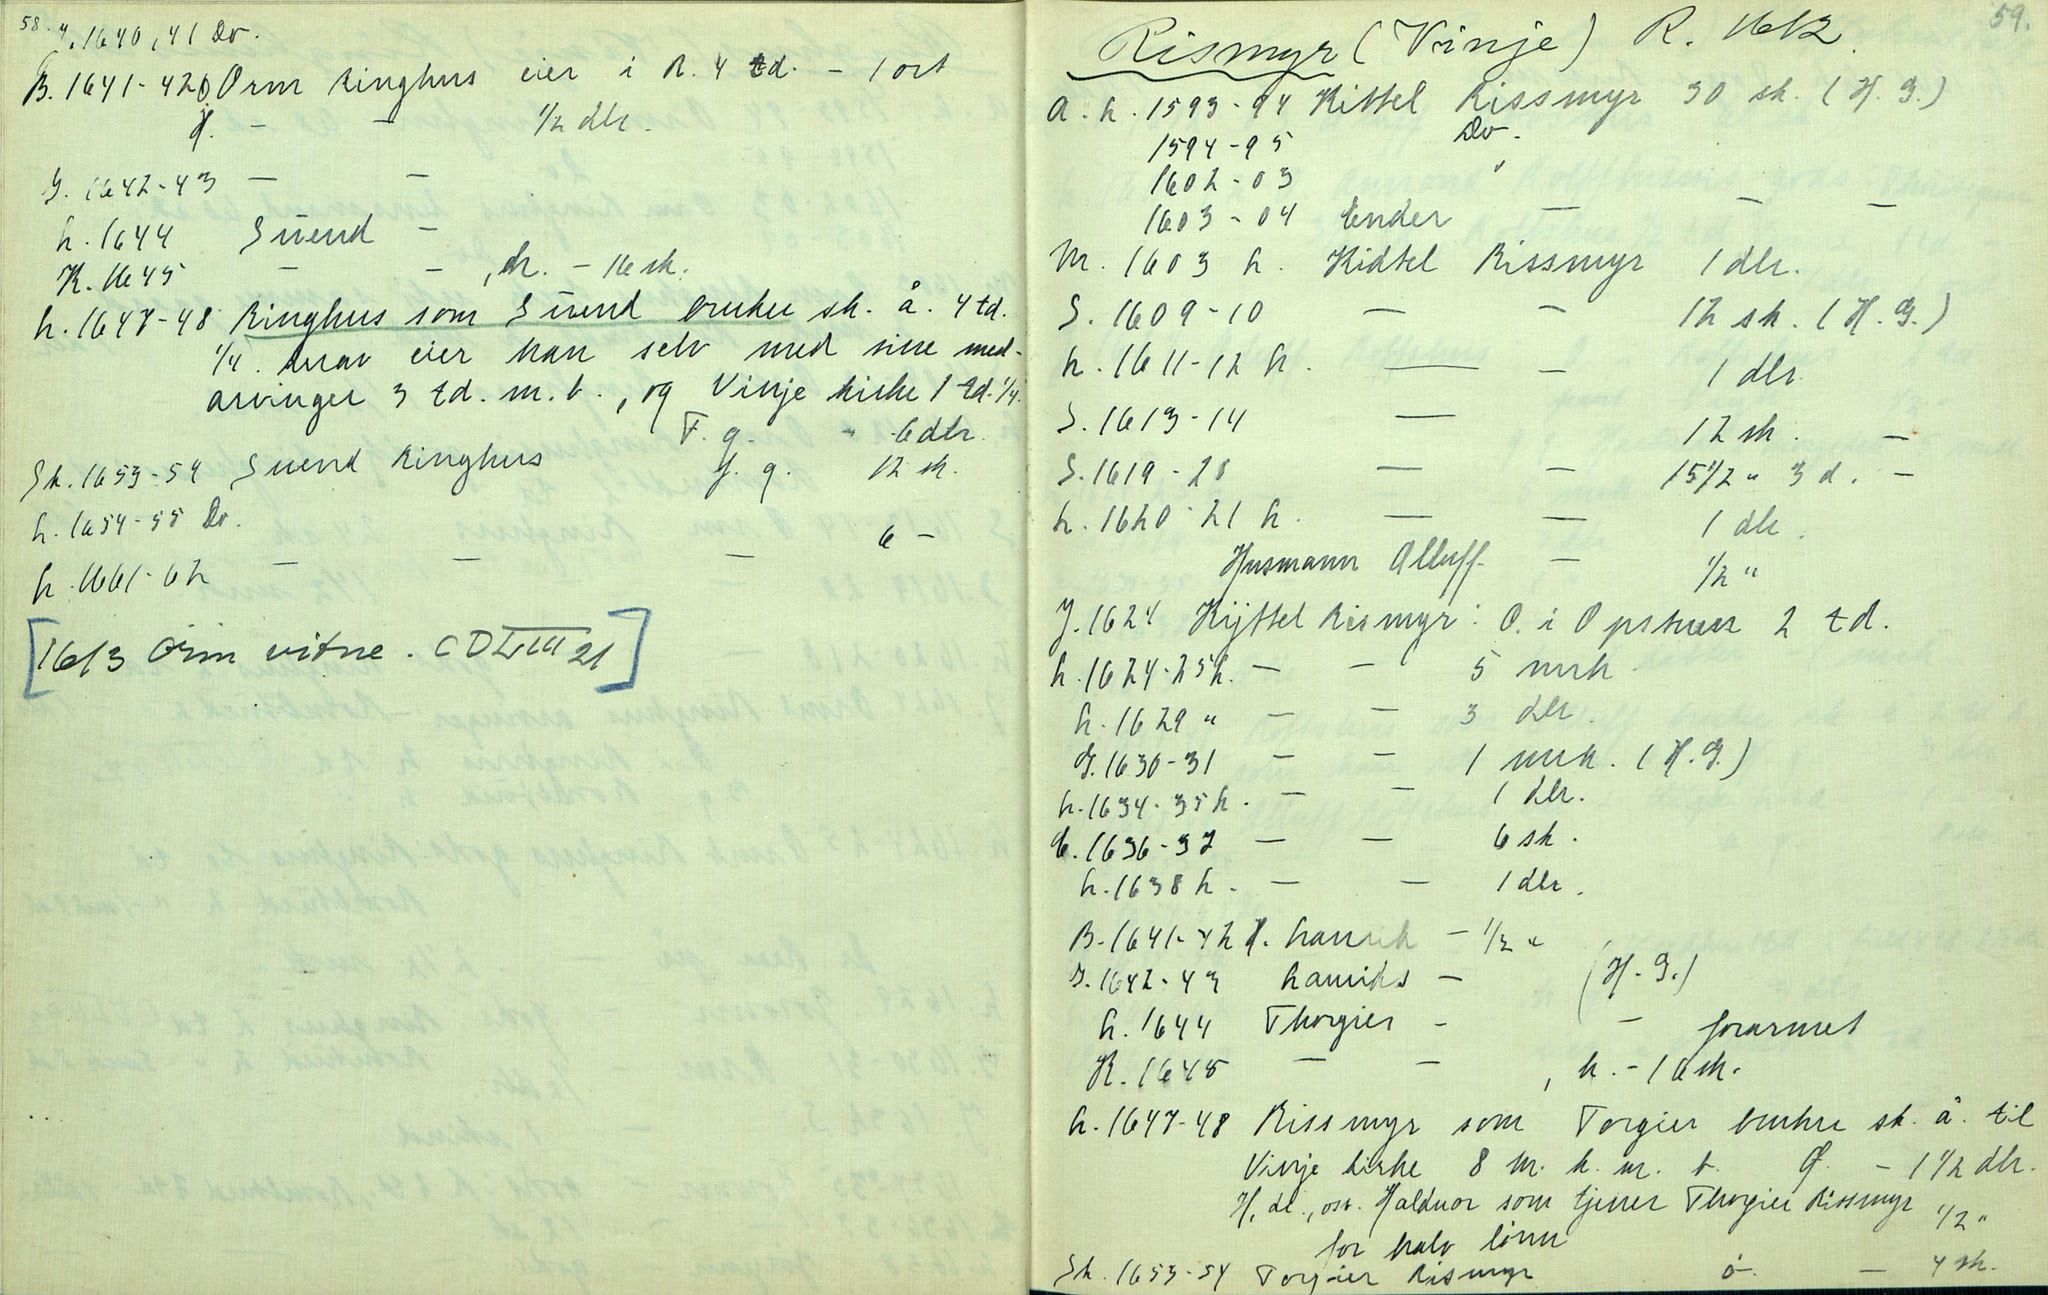 58.
4. 1640, 41 Do.
B. 1641-42 O Orm Ringhus eier i R. 4 td. - 1 ort
— — 1/2 dlr.
G. 1642-43 — —
h. 1644 Suend -
K. 1645 — —, h. - 16 sk.
h. 1647-48 Ringhus som Suend bruker sk. å. 4 td.
1/4. hvav eier han selv med sine med-
arvinger 3 td. m. b., og Vinje kirke 1 td. 1/4.
F. g. - 6 dlr.
Sk. 1653-54 Suend Ringhus J. g. 12 sk.
h. 1654-55 Do. 6 -
h. 1661-62 — — —
[1613 Orm vitne. CDLIII 21]
59.
Rismyr (Vinje) R. 1612.
A. h. 1593-94 Kittel Rissmyr 30 sk. (H. G.)
1594-95 Do.
1602-03 "
1603-04 Ender — — —
M. 1603 h. Kidtel Rissmyr 1 dlr.
S. 1609-10 — — 12 sk. (H. G.)
h. 1611-12 h. — — 1 dlr.
S. 1613-14 — 12 sk. —
S. 1619-20 — — 15 1/2 " 3 d. —
h. 1620-21 h. — — 1 dlr.
Husmann Alluff — 1/2 "
J. 1624 Kijttel Rismyr: O. i Opstuen 2 td.
h. 1624-25 h. — — 5 mrk.
h. 1629 " — — 3 dlr.
G. 1630-31 — — 1 mrk. (H. G.)
h. 1634-35 h. — — 1 dlr.
C. 1636-37 — — 6 sk.
h. 1638 h. — — 1 dlr.
B. 1641-42 — 1/2 "
G. 1642-43 — (H. G.)
h. 1644 Thorgier - — forarmet
K. 1645 — —, h. - 16 sk.
h. 1647-48 Rissmyr som Torgier bruker sk. å. til
Vinje kirke 8 m. k. m. b. — 1 1/2 dlr.
H. dr., osv. Halduor som tjener Thorgier Rissmyr 1/2 "
for halv lönn
Sk. 1653-54 Torgier Rismyr ö. — 4 sk.